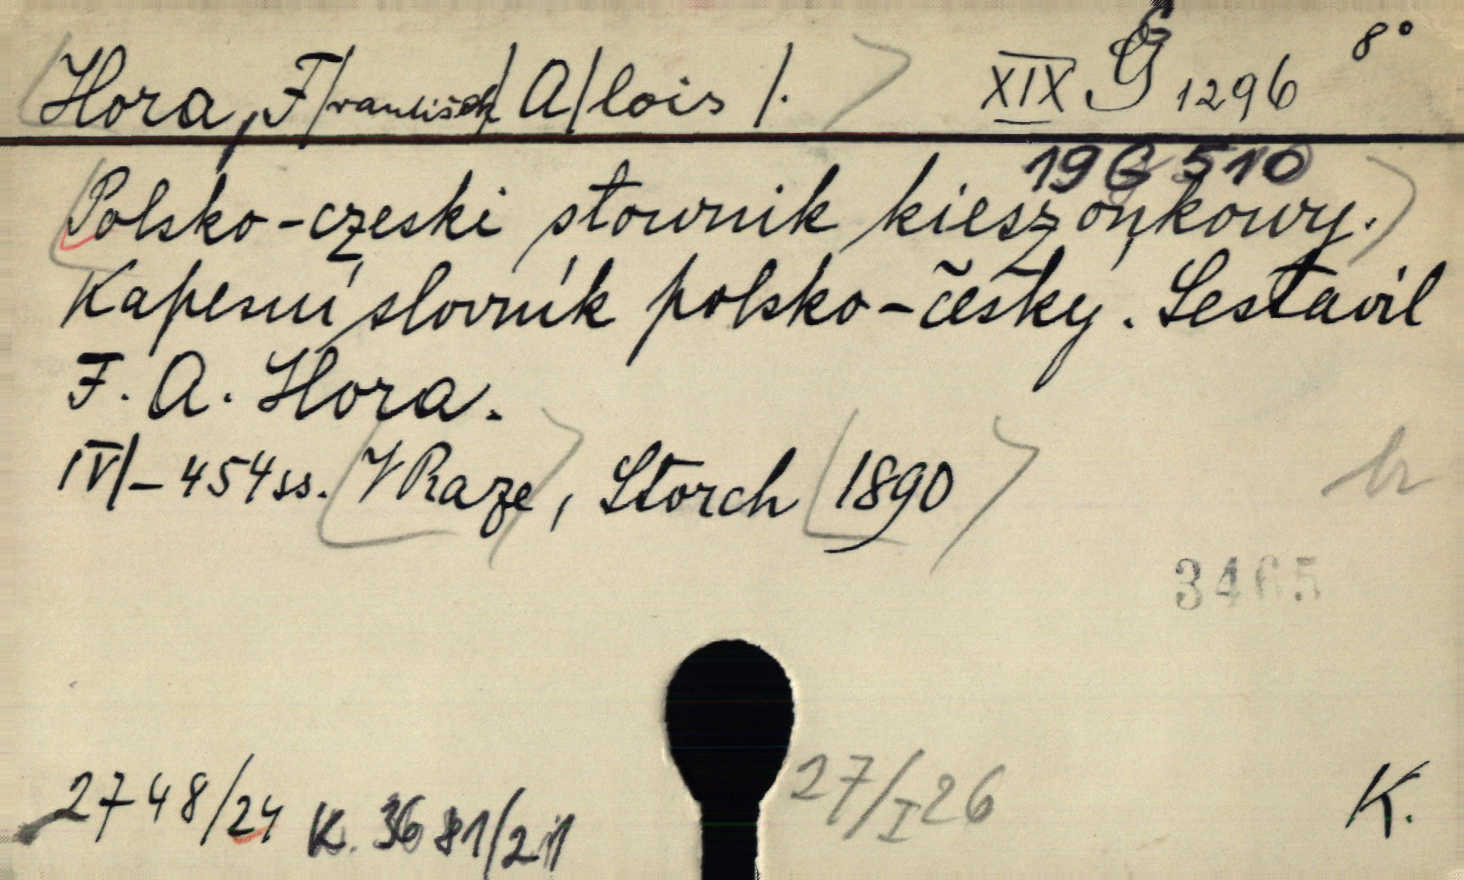 Hora, F/rantišek/ A/lois /. XIX G 1296 8°
19 G 510
Polsko-czeski słownik kieszonkowy.
Kapesní slovník polsko-česky. Sestavil
F. A. Hora.
IV/-454ss. V Praze, Storch 1890
3465
27/I 26
2748/24 K. 3681/21 K.